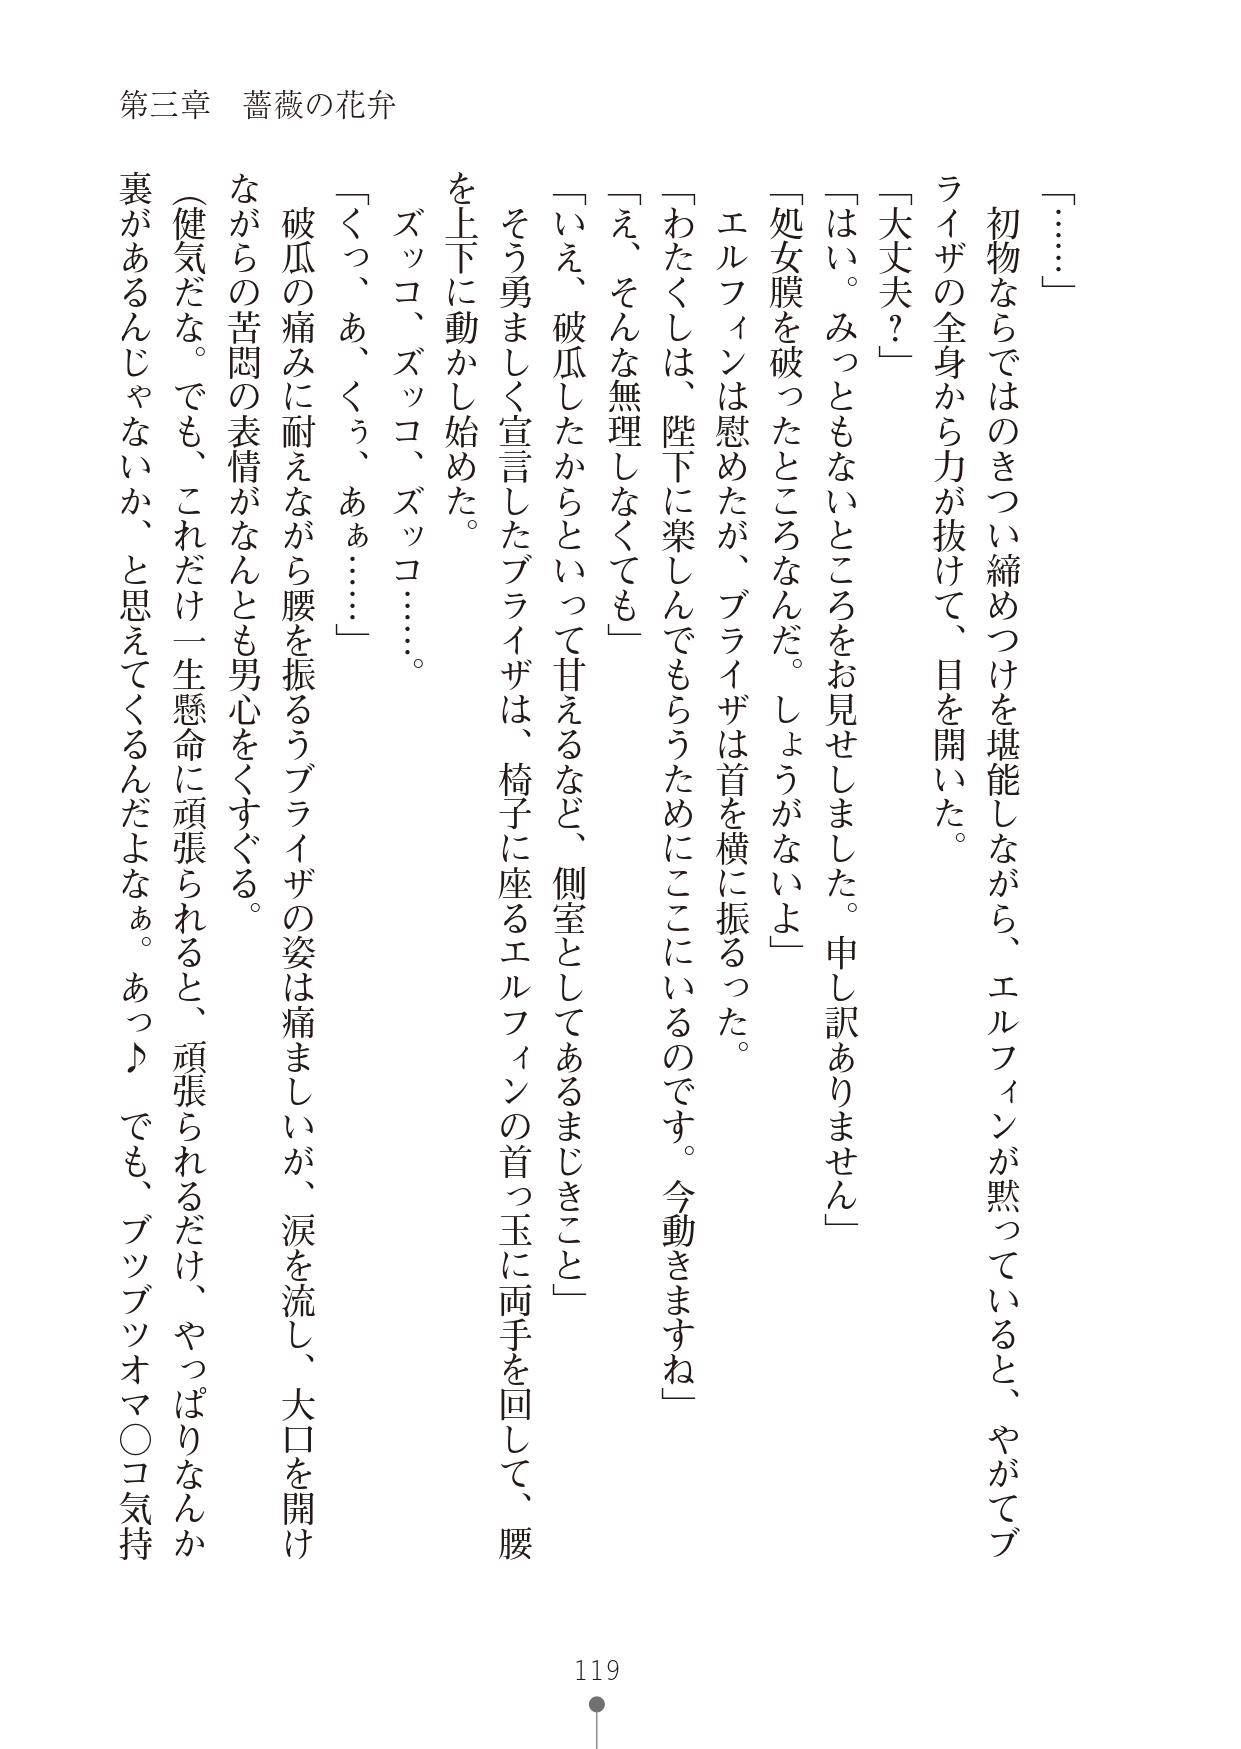 第三章　薔薇の花弁
「……」
　初物ならではのきつい締めつけを堪能しながら、エルフィンが黙っていると、やがてブ
ライザの全身から力が抜けて、目を開いた。
「大丈夫？」
「はい。みっともないところをお見せしました。申し訳ありません」
「処女膜を破ったところなんだ。しょうがないよ」
　エルフィンは慰めたが、ブライザは首を横に振るった。
「わたくしは、陛下に楽しんでもらうためにここにいるのです。今動きますね」
「え、そんな無理しなくても」
「いえ、破瓜したからといって甘えるなど、側室としてあるまじきこと」
　そう勇ましく宣言したブライザは、椅子に座るエルフィンの首っ玉に両手を回して、腰
を上下に動かし始めた。
　ズッコ、ズッコ、ズッコ……。
「くっ、あ、くぅ、あぁ……」
　破瓜の痛みに耐えながら腰を振るうブライザの姿は痛ましいが、涙を流し、大口を開け
ながらの苦悶の表情がなんとも男心をくすぐる。
（健気だな。でも、これだけ一生懸命に頑張られると、頑張られるだけ、やっぱりなんか
裏があるんじゃないか、と思えてくるんだよなぁ。あっ♪　でも、ブツブツオマ〇コ気持
119